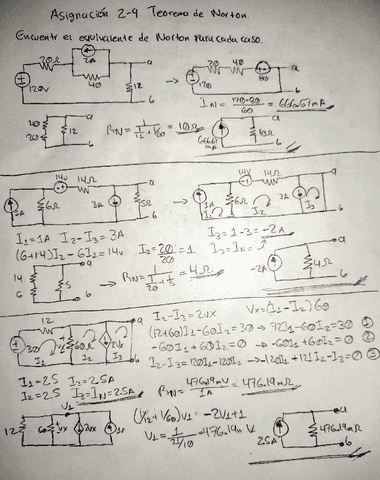 Asignación 2-4 Teorema de Norton.
Encuentr el equivalente de Norton para cada caso.
20Ω 2A a 20 40 80 a
120v 40 12 → 120
b b
I_N = 120-80/60 = 666.67mA
40 20 12 R_N = 1/(1/12+1/60) = 10Ω 666.67mA 10Ω
14v 14Ω a 14v 14Ω a
1A 6Ω 3A 5Ω → 1A I1 6Ω I2 3A I3
b b
I1=1A I2-I3=3A I3=1-3=-2A
(6+14)I2-6I1=14v I2=20/20=1 I3=I_N=
14 6 5 a b → R_N = 1/(1/20+1/5) = 4Ω -2A 4Ω a b
I2-I3=2Vx Vx=(I1-I2)60
12 a (12+60)I1-60I2=30 → 72I1-60I2=30 ①
30 I1 60 I2 2Vx I3 b -60I1+60I2=0 → -60I1+60I2=0 ②
I2-I3=120I1-120I2 → -120I1+121I2-I3=0 ③
I1=2.5 I3=2.5A
I2=2.5 I3=I_N=2.5A R_N = 476.19mV/1A = 476.19mΩ
V1
12 60 Vx 2Vx 1A (1/12+1/60)V1=-2V1+1
V1=1/(21/10)=476.19mV 2.5A 476.19mΩ a b